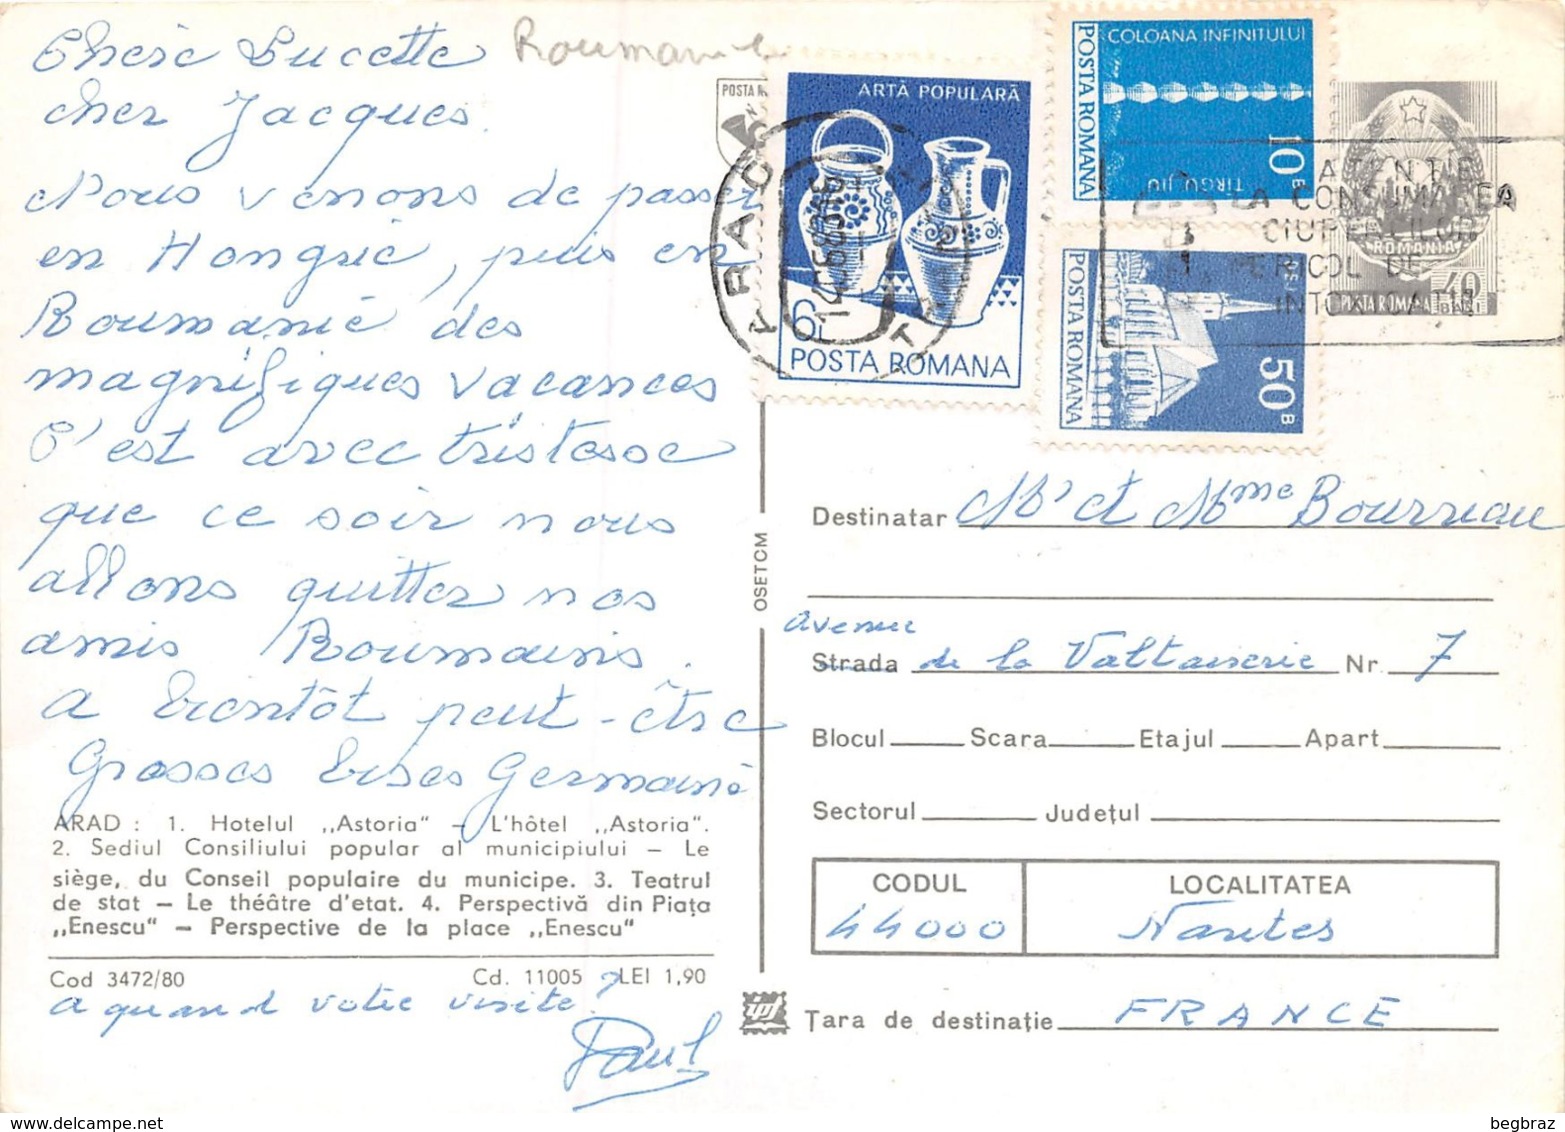 Roumanie
Chère Lucette
cher Jacques
Nous venons de passer
en Hongrie, puis en
Roumanie des
magnifiques vacances
C'est avec tristesse
que ce soir nous
allons quitter nos
amis Roumains.
A bientôt peut-être
Grosses bises Germaine
ARAD : 1. Hotelul ,,Astoria" – L'hôtel ,,Astoria".
2. Sediul Consiliului popular al municipiului – Le
siège, du Conseil populaire du municipe. 3. Teatrul
de stat – Le théâtre d'etat. 4. Perspectivă din Piața
,,Enescu" – Perspective de la place ,,Enescu"
Cod 3472/80 Cd. 11005 LEI 1,90
a quand votre visite?
Paul
OSETCM
POSTA R
ARTĂ POPULARĂ
6L
POSTA ROMANA
ARAD
COLOANA INFINITULUI
POSTA ROMANA
10B
TÎRGU JIU
POSTA ROMANA
50B
ROMANIA
POSTA ROMANA 40 BANI
ATENTIE
LA CONSUMAREA
CIUPERCILOR
PERICOL DE
INTOXICATII
Destinatar Mr et Mme Bourreau
avenue
Strada de la Valtaiserie Nr. 7
Blocul Scara Etajul Apart
Sectorul Județul
CODUL LOCALITATEA
44000 Nantes
Țara de destinație FRANCE
begbraz